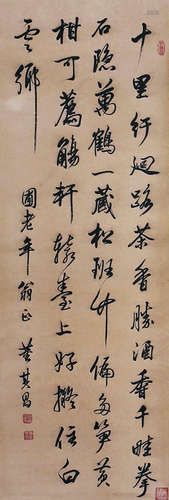 十里紆迴路茶香勝酒香千畦拳
石隱萬鶴一藏松班竹偏多笋黄
柑可薦觴軒轅臺上好擬住白
雲鄉
圃老年翁正 董其昌